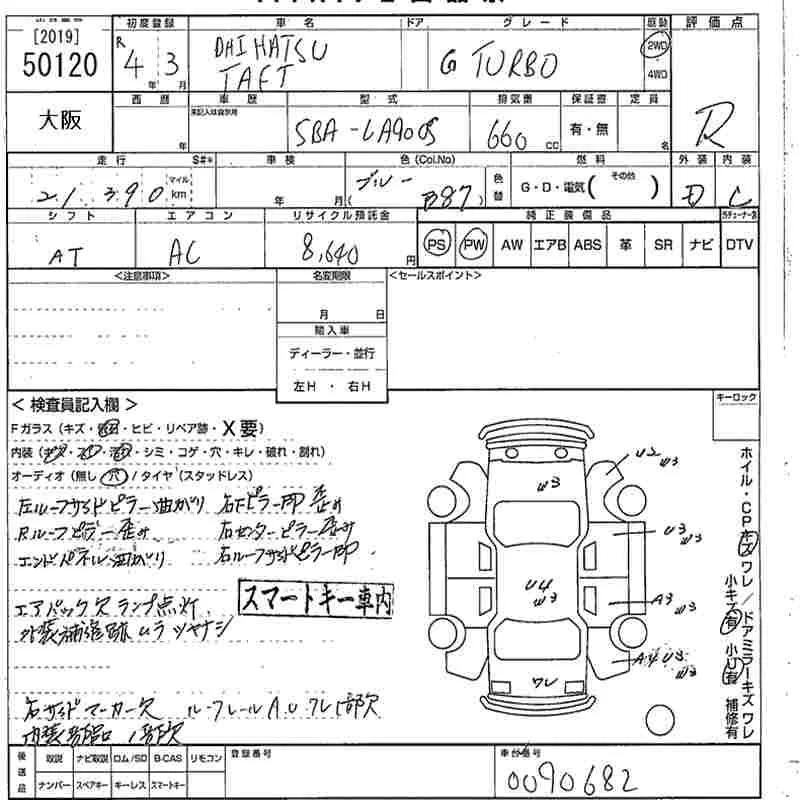 [2019]
50120
初度登録
R 4 年 3 月
車名
DAIHATSU
TAFT
ドア
グレード
G TURBO
駆動
2WD
4WD
評価点
R
大阪
西暦
年
車歴
未記入は自家用
型式
5BA-LA900S
排気量
660 CC
保証書
有・無
定員
名
走行
21,390
マイル
km
S#*
車検
年 月
色(Col.No)
ブルー
(B87)
色替
燃料
G・D・電気( その他 )
外装
D
内装
C
シフト
AT
エアコン
AC
リサイクル預託金
8,640 円
純正装備品
PS PW AW エアB ABS 革 SR ナビ DTV
<注意事項>
名変期限
月 日
輸入車
ディーラー・並行
左H・右H
<セールスポイント>
<検査員記入欄>
Fガラス(キズ・飛石・ヒビ・リペア跡・X要)
内装(キズ・スレ・汚・シミ・コゲ・穴・キレ・破れ・割れ)
オーディオ(無し・穴)/タイヤ(スタッドレス)
左ルーフサイドピラー曲がり 右Fピラー凹 歪み
Rルーフピラー歪み 右センターピラー歪み
エンドパネル曲がり 右ルーフサイドピラー凹
エアバック欠 ランプ点灯
外装補修跡ムラツヤナシ
スマートキー車内
右サイドマーカー欠 ルーフレールA、U ワレ 1部欠
キーロック
U2 W3
W3
U3 W3
U4
W3
A3 U3
W3
A4 U3
W3
ワレ
ホイル・CPキズ ワレ/ドアミラーキズ ワレ
小キズ有 小U有 補修有
後送品
取説 ナビ取説 ロム/SD B-CAS リモコン
ナンバー スペアキー キーレス スマートキー
登録番号
車台番号
0090682